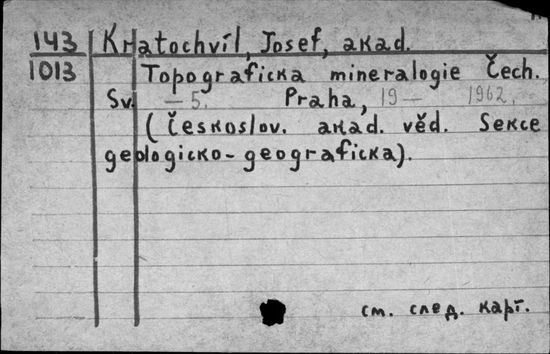 143 Kratochvíl, Josef, akad.
1013 Topograficka mineralogie Čech.
Sv. — 5. Praha, 19 — 1962.
(Českoslov. akad. věd. Sekce
geologicko-geograficka).
см. след. карт.